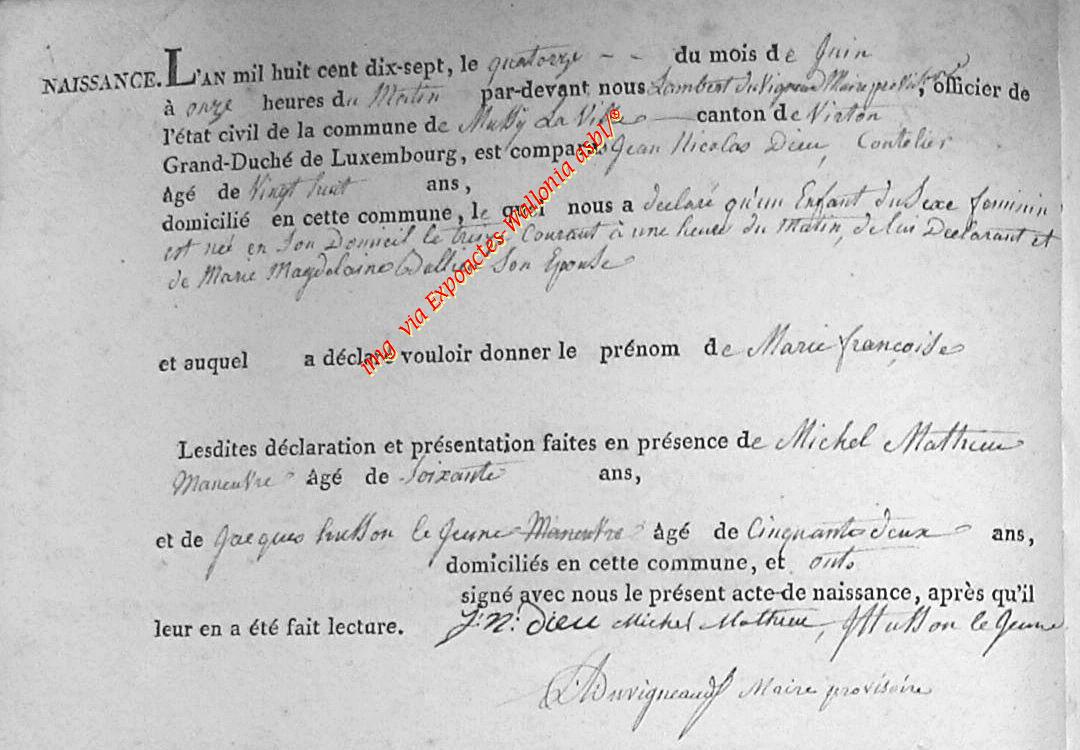 NAISSANCE. L'AN mil huit cent dix-sept, le quatorze - - du mois de Juin
à onze heures du Matin par-devant nous Lambert Duvigneaud Maire provisoire, officier de
l'état civil de la commune de Mussy La Ville canton de Virton
Grand-Duché de Luxembourg, est comparu Jean Nicolas Dieu, Coutelier
âgé de Vingt huit ans,
domicilié en cette commune, le quel nous a declaré qu'un Enfant du Sexe feminin
est né en Son Domicil le treize Courant à une heure du Matin, de lui Declarant et
de Marie Magdelaine Son Epouse
et auquel a déclaré vouloir donner le prénom de Marie françoise
Lesdites déclaration et présentation faites en présence de Michel Mathieu
Maneuvre âgé de Soixante ans,
et de Jacques husson le Jeune Maneuvre âgé de Cinquante deux ans,
domiciliés en cette commune, et ont
signé avec nous le présent acte de naissance, après qu'il
leur en a été fait lecture. J: N: Dieu Michel Mathieu, J Husson le Jeune
Duvigneaud Maire provisoire
img via Expoactes-Wallonia asbl/®